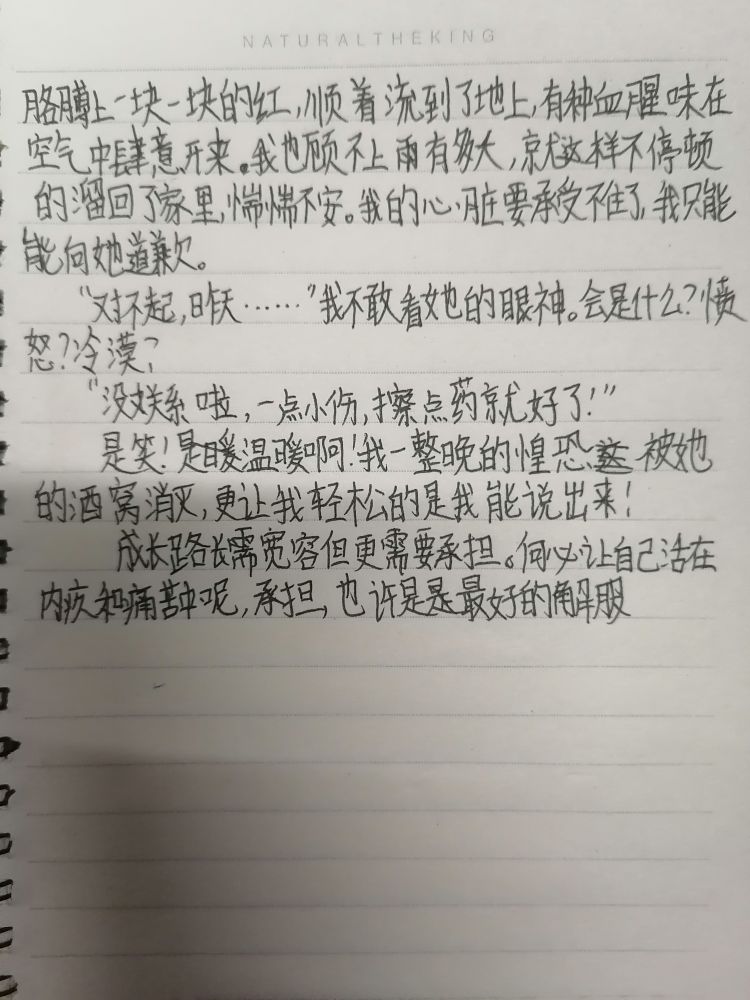 NATURALTHEKING
胳膊上一块一块的红,顺着流到了地上,有种血腥味在
空气中肆意开来。我也顾不上雨有多大,就这样不停顿
的溜回了家里,惴惴不安。我的心脏要承受不住了,我只能
能向她道歉。
“对不起,昨天……”我不敢看她的眼神。会是什么?愤
怒?冷漠?
“没关系啦,一点小伤,擦点药就好了!”
是笑!是暖温暖啊!我一整晚的惶恐被她
的酒窝消灭,更让我轻松的是我能说出来!
成长路长需宽容但更需要承担。何必让自己活在
内疚和痛苦中呢,承担,也许是是最好的解服